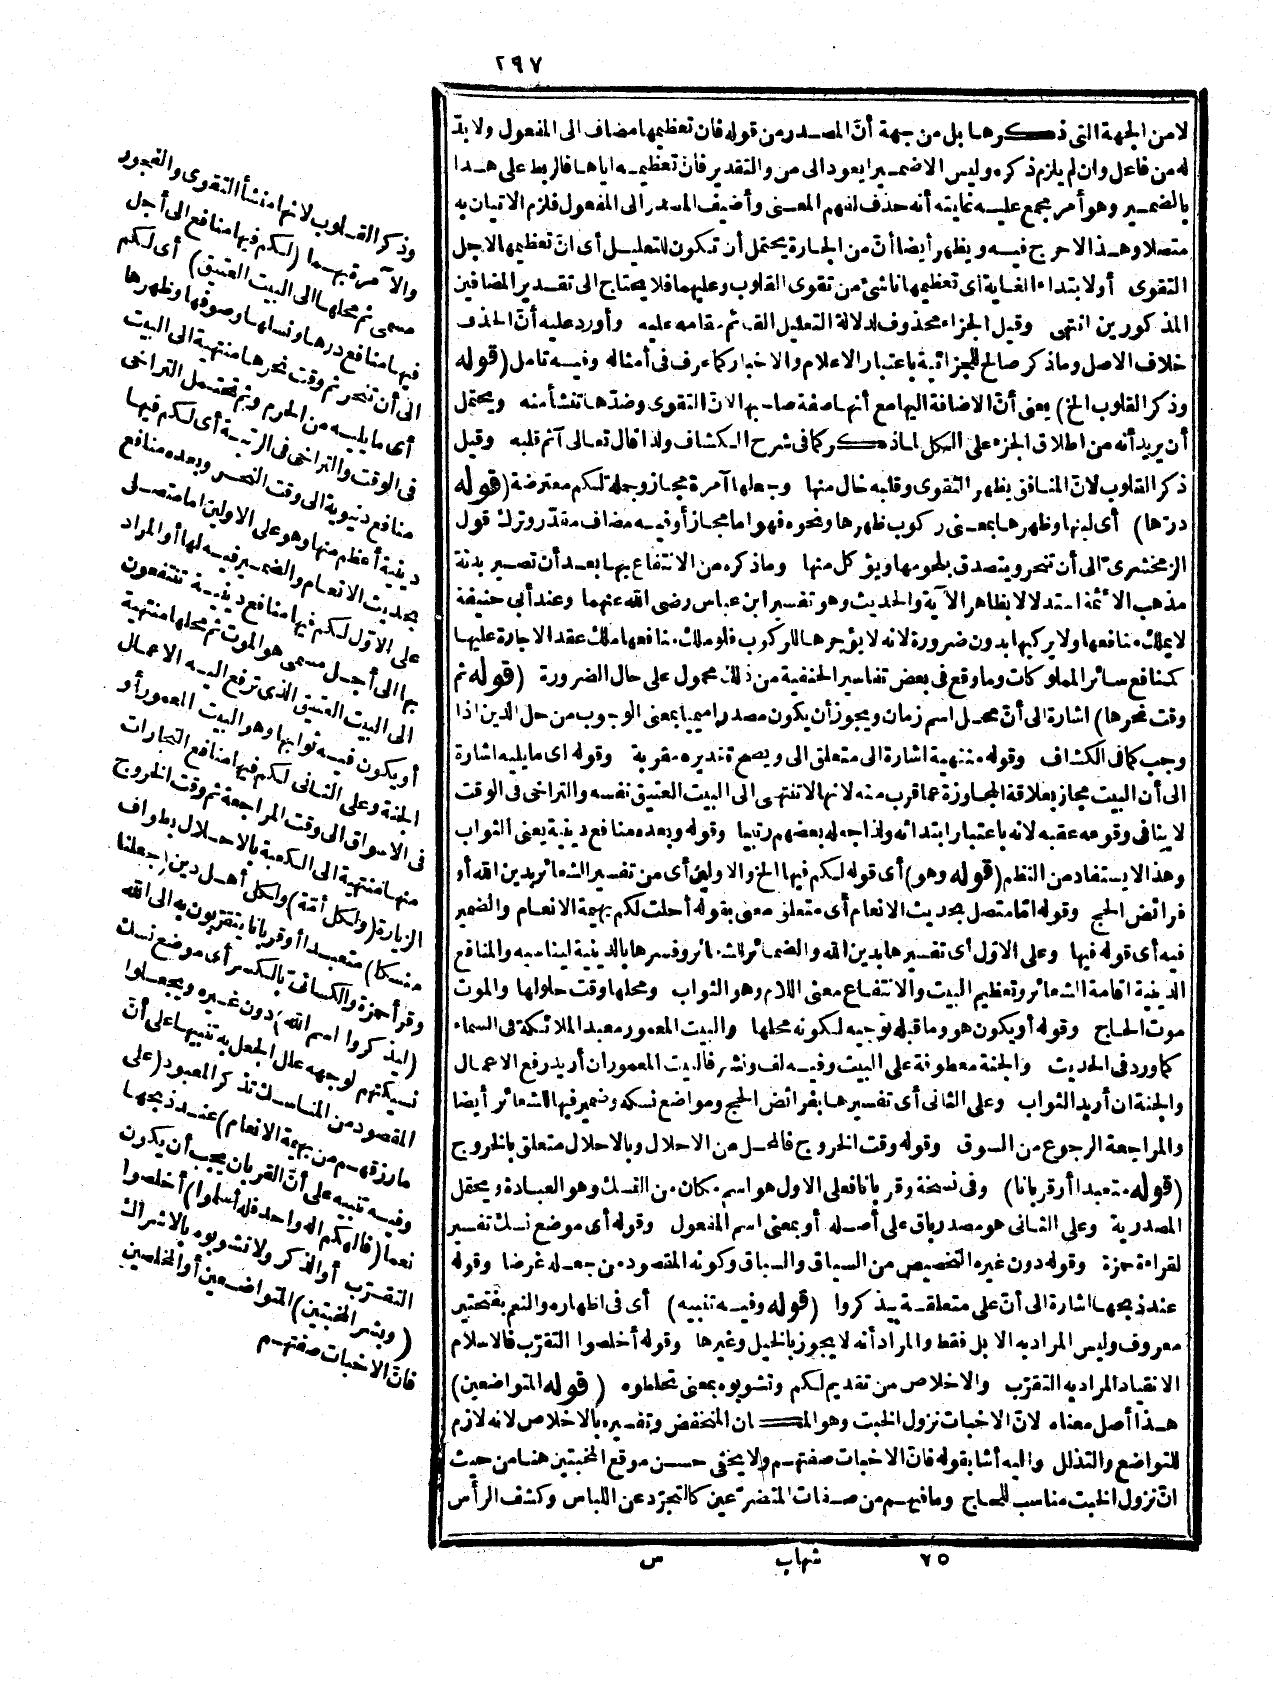 ٢٩٧
لا من الجهة التى ذكرها بل من جهة أنّ المصدر من قوله فان تعظيمها مضاف الى المفعول ولا بدّ
له من فاعل وان لم يلزم ذكره وليس الا ضميرا يعود الى من والتقدير فانّ تعظيمه اياها فالربط على هذا
بالضمير وهو أمر مجمع عليه غايته أنه حذف لفهم المعنى وأضيف المصدر الى المفعول فلزم الاتيان به
متصلا وهذا لا حرج فيه ويظهر أيضا أنّ من الجارة يحتمل أن تكون للتعليل أى انّ تعظيمها لاجل
التقوى أو لابتداء الغاية أى تعظيمها ناشئ من تقوى القلوب وعليهما فلا يحتاج الى تقدير المضافين
المذكورين انتهى وقيل الجزاء محذوف لدلالة التعليل القائم مقامه عليه وأورد عليه أنّ الحذف
خلاف الاصل وما ذكر صالح للجزائية باعتبار الاعلام والاخبار كما عرف فى أمثاله وفيه تامل (قوله
وذكر القلوب الخ) يعنى أنّ الاضافة اليها مع أنها صفة صاحبها لانّ التقوى وضدّها تنشأ منه ويحتمل
أن يريد أنه من اطلاق الجزء على الكل لما ذكر كما فى شرح الكشاف ولذا قال تعالى آثم قلبه وقيل
ذكر القلوب لانّ المنافق يظهر التقوى وقلبه خال منها وجعلها آمرة مجاز وجملة لكم معترضة (قوله
درّها) أى لبنها وظهرها بمعنى ركوب ظهرها ونحوه فهو اما مجاز أو فيه مضاف مقدّر وترك قول
الزمخشرىّ الى أن تنحر ويتصدق بلحومها ويؤكل منها وما ذكره من الانتفاع بها بعد أن تصير بدنة
مذهب الائمة استدلالا بظاهر الآية والحديث وهو تفسير ابن عباس رضى الله عنهما وعند أبى حنيفة
لا يملك منافعها ولا يركبها بدون ضرورة لانه لا يؤجرها للركوب فلو ملك منافعها ملك عقد الاجارة عليها
كمنافع سائر المملوكات وما وقع فى بعض تفاسير الحنفية من ذلك محمول على حال الضرورة (قوله ثم
وقت نحرها) اشارة الى أنّ محل اسم زمان ويجوز أن يكون مصدرا ميميا بمعنى الوجوب من حل الدين اذا
وجب كما فى الكشاف وقوله منتهية اشارة الى متعلق الى ويصح تقديره مقربة وقوله اى ما يليه اشارة
الى أن البيت مجاز بعلاقة المجاورة عما قرب منه لانها لا تنتهى الى البيت العتيق نفسه والتراخى فى الوقت
لا ينافى وقوعه عقبه لانه باعتبار ابتدائه ولذا جعله بعضهم رتبيا وقوله وبعده منافع دينية يعنى الثواب
وهذا لا يستفاد من النظم (قوله وهو) أى قوله لكم فيها الخ والاولين أى من تفسير الشعائر بدين الله أو
فرائض الحج وقوله امّا متصل بحديث الانعام أى متعلق معنى بقوله أحلت لكم بهيمة الانعام والضمير
فيه أى قوله فيها وعلى الاول أى تفسيرها بدين الله والضمائر للشعائر وفسرها بالدينية ليناسبه والمنافع
الدينية اقامة الشعائر وتعظيم البيت والانتفاع معنى اللام وهو الثواب ومحلها وقت حلولها والموت
موت الحاج وقوله أو يكون هو وما قبله توجيه لكونه محلها والبيت المعمور معبد الملائكة فى السماء
كما ورد فى الحديث والجنة معطوفة على البيت وفيه لف ونشر فالبيت المعمور ان أريد رفع الاعمال
والجنة ان أريد الثواب وعلى الثانى أى تفسيرها بفرائض الحج ومواضع نسكه وضمير فيها للشعائر أيضا
والمراجعة الرجوع من السوق وقوله وقت الخروج فالمحل من الاحلال وبالاحلال متعلق بالخروج
(قوله متعبدا أو قربانا) وفى نسخة وقربانا فعلى الاول هو اسم مكان من النسك وهو العبادة ويحتمل
المصدرية وعلى الثانى هو مصدر باق على أصله أو بمعنى اسم المفعول وقوله أى موضع نسك تفسير
لقراءة حمزة وقوله دون غيره التخصيص من السياق والسباق وكونه المقصود من جعله غرضا وقوله
عند ذبحها اشارة الى أنّ على متعلقة بيذكروا (قوله وفيه تنبيه) أى فى اظهاره والنعم بفتحتين
معروف وليس المراد به الابل فقط والمراد أنه لا يجوز بالخيل وغيرها وقوله أخلصوا التقرّب فالاسلام
الانقياد المراد به التقرّب والاخلاص من تقديم لكم وتشوبوه بمعنى تخلطوه (قوله المتواضعين)
هذا أصل معناه لانّ الاخبات نزول الخبت وهو المكان المنخفض وتفسيره بالاخلاص لانه لازم
للتواضع والتذلل واليه أشار بقوله فانّ الاخبات صفتهم ولا يخفى حسن موقع المخبتين هنا من حيث
انّ نزول الخبت مناسب للحاج وما فيهم من صفات المتضرّعين كالتجرّد عن اللباس وكشف الرأس
٧٥ شهاب س
وذكر القلوب لانها منشأ التقوى والفجور
والآمرة بهما (لكم فيها منافع الى أجل
مسمى ثم محلها الى البيت العتيق) أى لكم
فيها منافع درها ونسلها وصوفها وظهرها
الى أن تنحر ثم وقت نحرها منتهية الى البيت
أى ما يليه من الحرم وثم تحتمل التراخى
فى الوقت والتراخى فى الرتبة أى لكم فيها
منافع دنيوية الى وقت النحر وبعده منافع
دينية أعظم منها وهو على الاولين اما متصل
بحديث الانعام والضمير فيه لها أو المراد
على الاول لكم فيها منافع دينية تنتفعون
بها الى أجل مسمى هو الموت ثم محلها منتهية
الى البيت العتيق الذى ترفع اليه الاعمال
أو يكون فيه ثوابها وهو البيت المعمور أو
الجنة وعلى الثانى لكم فيها منافع التجارات
فى الاسواق الى وقت المراجعة ثم وقت الخروج
منها منتهية الى الكعبة بالاحلال بطواف
الزيارة (ولكل أمّة) ولكل أهل دين (جعلنا
منسكا) متعبدا أو قربانا يتقربون به الى الله
وقرأ حمزة والكسائى بالكسر أى موضع نسك
(ليذكروا اسم الله) دون غيره ويجعلوا
نسيكتهم لوجهه علل الجعل به تنبيها على أنّ
المقصود من المناسك تذكر المعبود (على
ما رزقهم من بهيمة الانعام) عند ذبحها
وفيه تنبيه على أنّ القربان يجب أن يكون
نعما (فالهكم اله واحد فله أسلموا) أخلصوا
التقرّب أو الذكر ولا تشوبوه بالاشراك
(وبشر المخبتين) المتواضعين أو المخلصين
فانّ الاخبات صفتهم